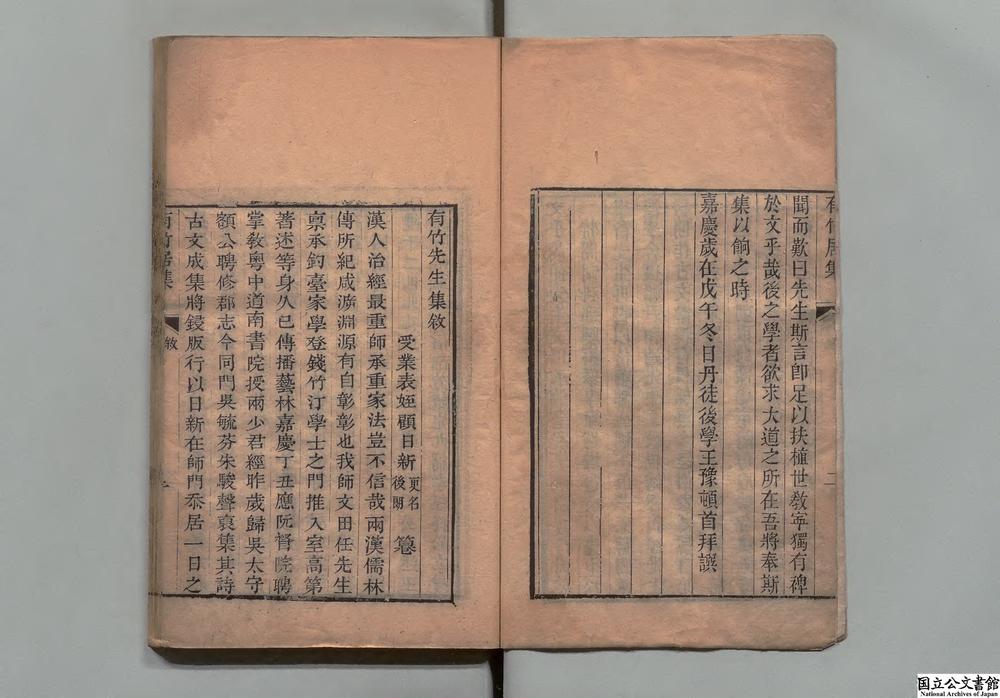 有竹居集
聞而歎曰先生斯言卽足以扶植世敎寧獨有裨
於文乎哉後之學者欲求大道之所在吾將奉斯
集以餉之時
嘉慶歲在戊午冬日丹徒後學王豫頓首拜譔
二
有竹先生集敘
受業表姪顧日新更名後閎
漢人治經最重師承重家法豈不信哉兩漢儒林
傳所紀咸泝淵源有自彰彰也我師文田任先生
稟承釣臺家學登錢竹汀學士之門推入室高第
著述等身久已傳播藝林嘉慶丁丑應阮督院聘
掌敎粵中道南書院授兩少君經昨歲歸吳太守
額公聘修郡志今同門吳毓芬朱駿聲裒集其詩
古文成集將鋟版行以日新在師門忝居一日之
有竹居集
敘
国立公文書館
National Archives of Japan